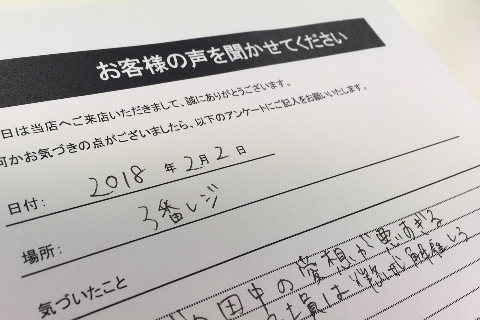 お客様の声を聞かせてください
日は当店へご来店いただきまして、誠にありがとうございます。
何かお気づきの点がございましたら、以下のアンケートにご記入をお願いいたします。
日付： 2018 年 2月 2日
場所： 3番レジ
気づいたこと
田中の愛想が悪すぎる
は 解雇しろ